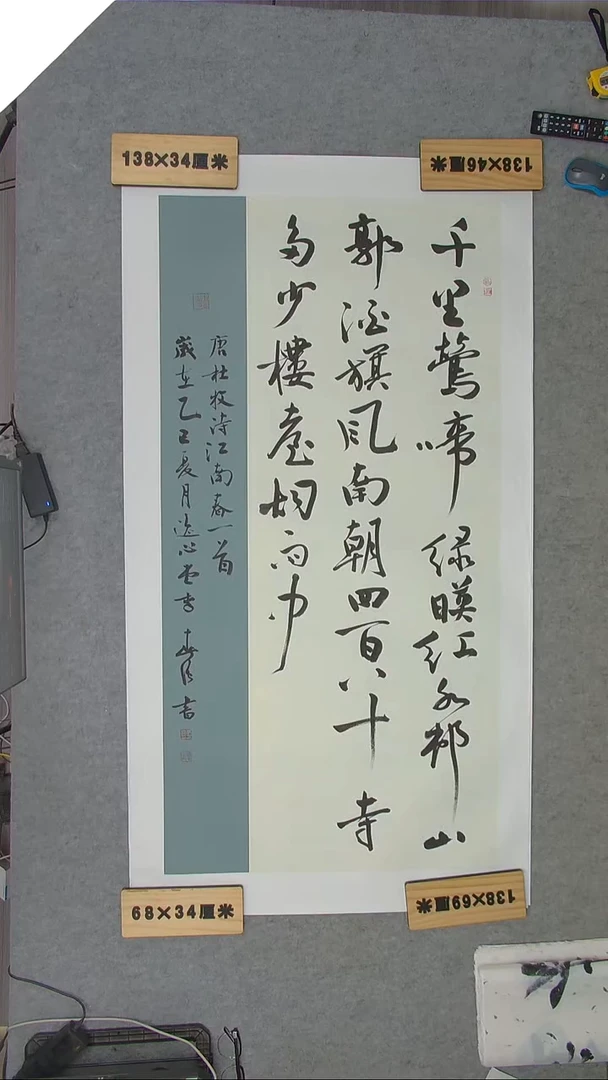 138×34厘米
138×46厘米
千里鶯啼绿暎红水邨山
郭酒旗风南朝四百八十寺
多少樓臺烟雨中
唐杜牧诗江南春一首
歲在乙巳夏月逸心堂李书
68×34厘米
138×69厘米